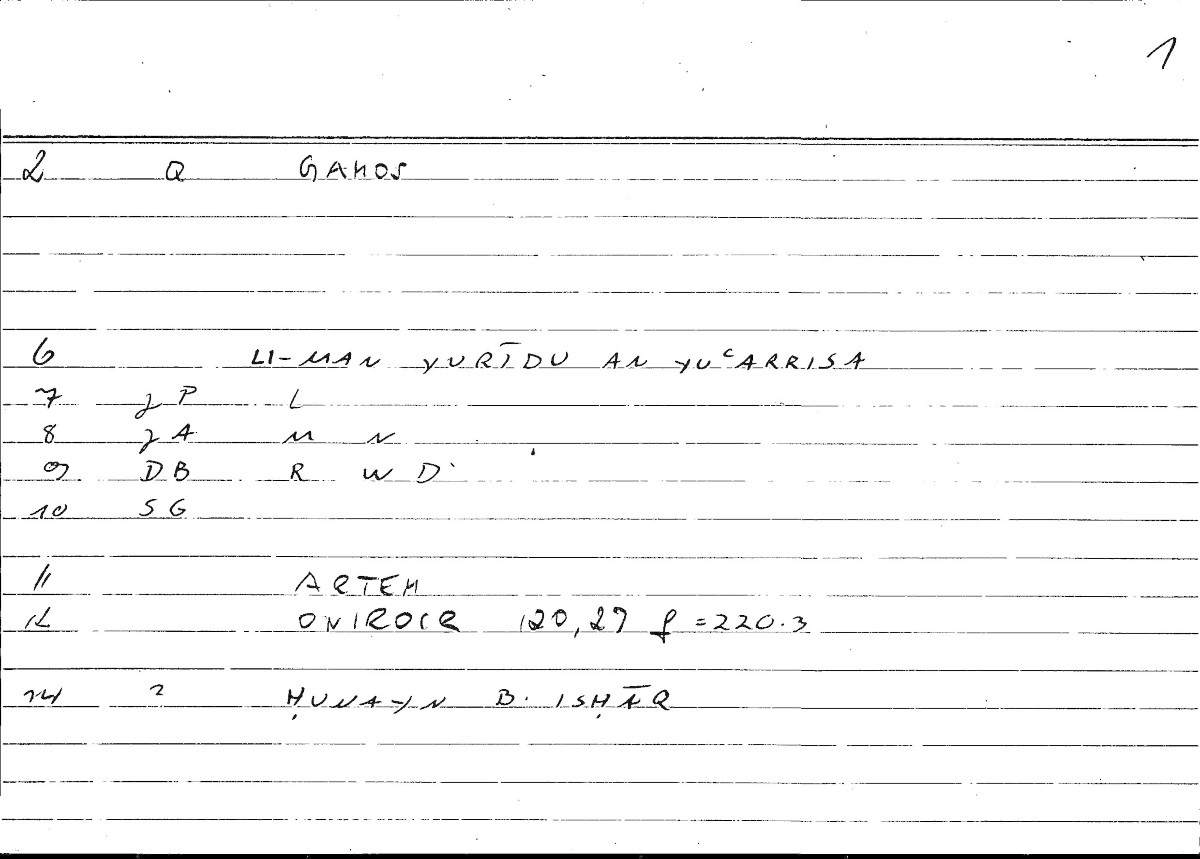 1
2 Q GAMOS
6 LI-MAN YURĪDU AN YUʿARRISA
7 JP L
8 JA M N
9 DB R W D
10 SG
11 ARTEM
12 ONIROCR 120,27 f = 220.3
14 2 ḤUNAYN B. ISḤĀQ